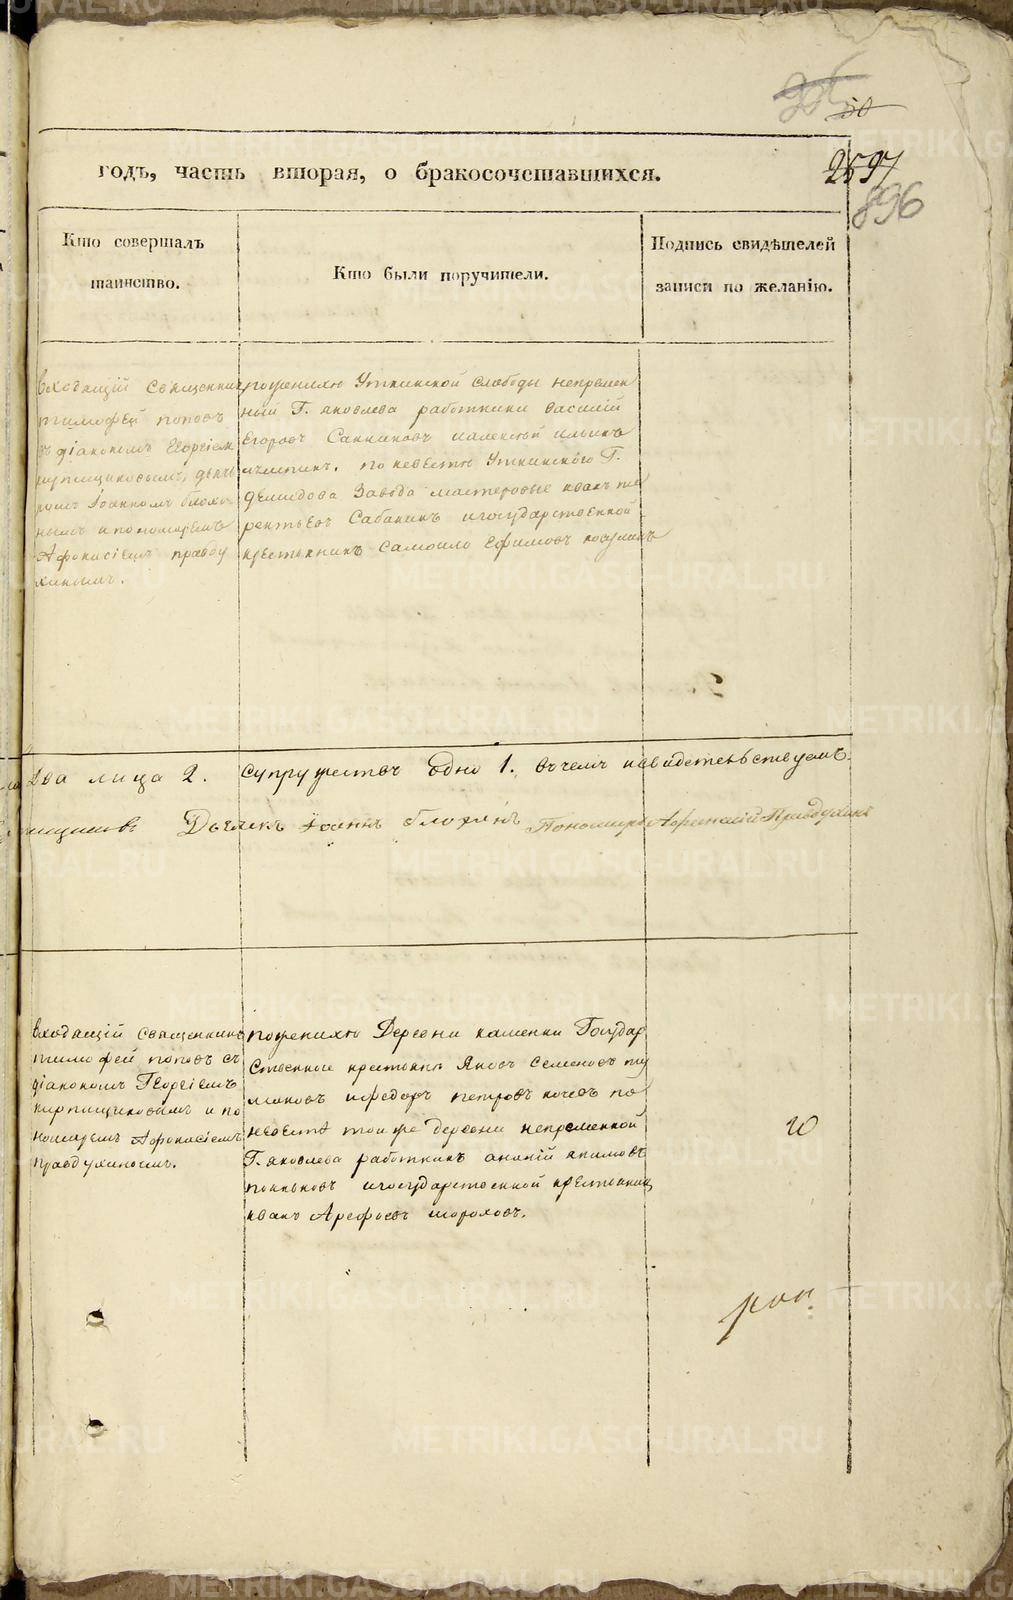 50
годъ, часть вторая, о бракосочетавшихся.
2597
896
Кто совершалъ
таинство.
Кто были поручители.
Подпись свидѣтелей
записи по желанію.
входящій священникъ
тимофей поповъ
съ діакономъ Георгіемъ
кирпищиковымъ, дьяч
комъ Іоанномъ блохи
нымъ и пономаремъ
Афонасіемъ правду
хинымъ.
по женихѣ Уткинской слободы непремен
ный Г. яковлева работники василій
Егоровъ Санниковъ калентьй ильинъ
по невестѣ Уткинскаго Г.
демидова Завода мастеровые иванъ те
рентьевъ Сабанинъ и государственной
крестьянинъ Самоило Ефимовъ
два лица 2. супружествъ одно 1. въ чемъ и свидетельствуемъ.
Дьячекъ Іоаннъ блохинъ Пономарь Афонасій Правдухинъ
входящій священникъ
тимофей поповъ съ
діакономъ Георгіемъ
кирпищиковымъ и по
номаремъ Афонасіемъ
правдухинымъ.
по женихѣ Деревни каменки Государ
ственные крестьяна Яковъ Семеновъ ту
маковъ и федоръ петровъ кочевъ по
невестѣ той же деревни непременной
Г. яковлева работникъ ананій якимовъ
поляковъ и государственной крестьянинъ
иванъ Арефьевъ шороховъ.
METRIKI.GASO-URAL.RU